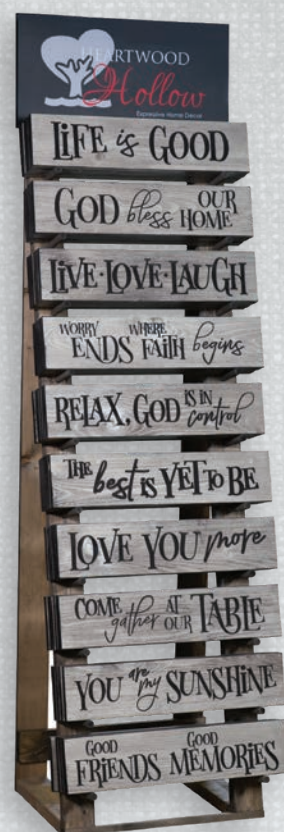 HEARTWOOD
Hollow
Expressive Home Decor
LIFE is GOOD
GOD bless OUR HOME
LIVE·LOVE·LAUGH
WORRY ENDS WHERE FAITH begins
RELAX, GOD IS IN control
THE best IS YET TO BE
LOVE YOU more
COME gather AT OUR TABLE
YOU are my SUNSHINE
GOOD FRIENDS GOOD MEMORIES